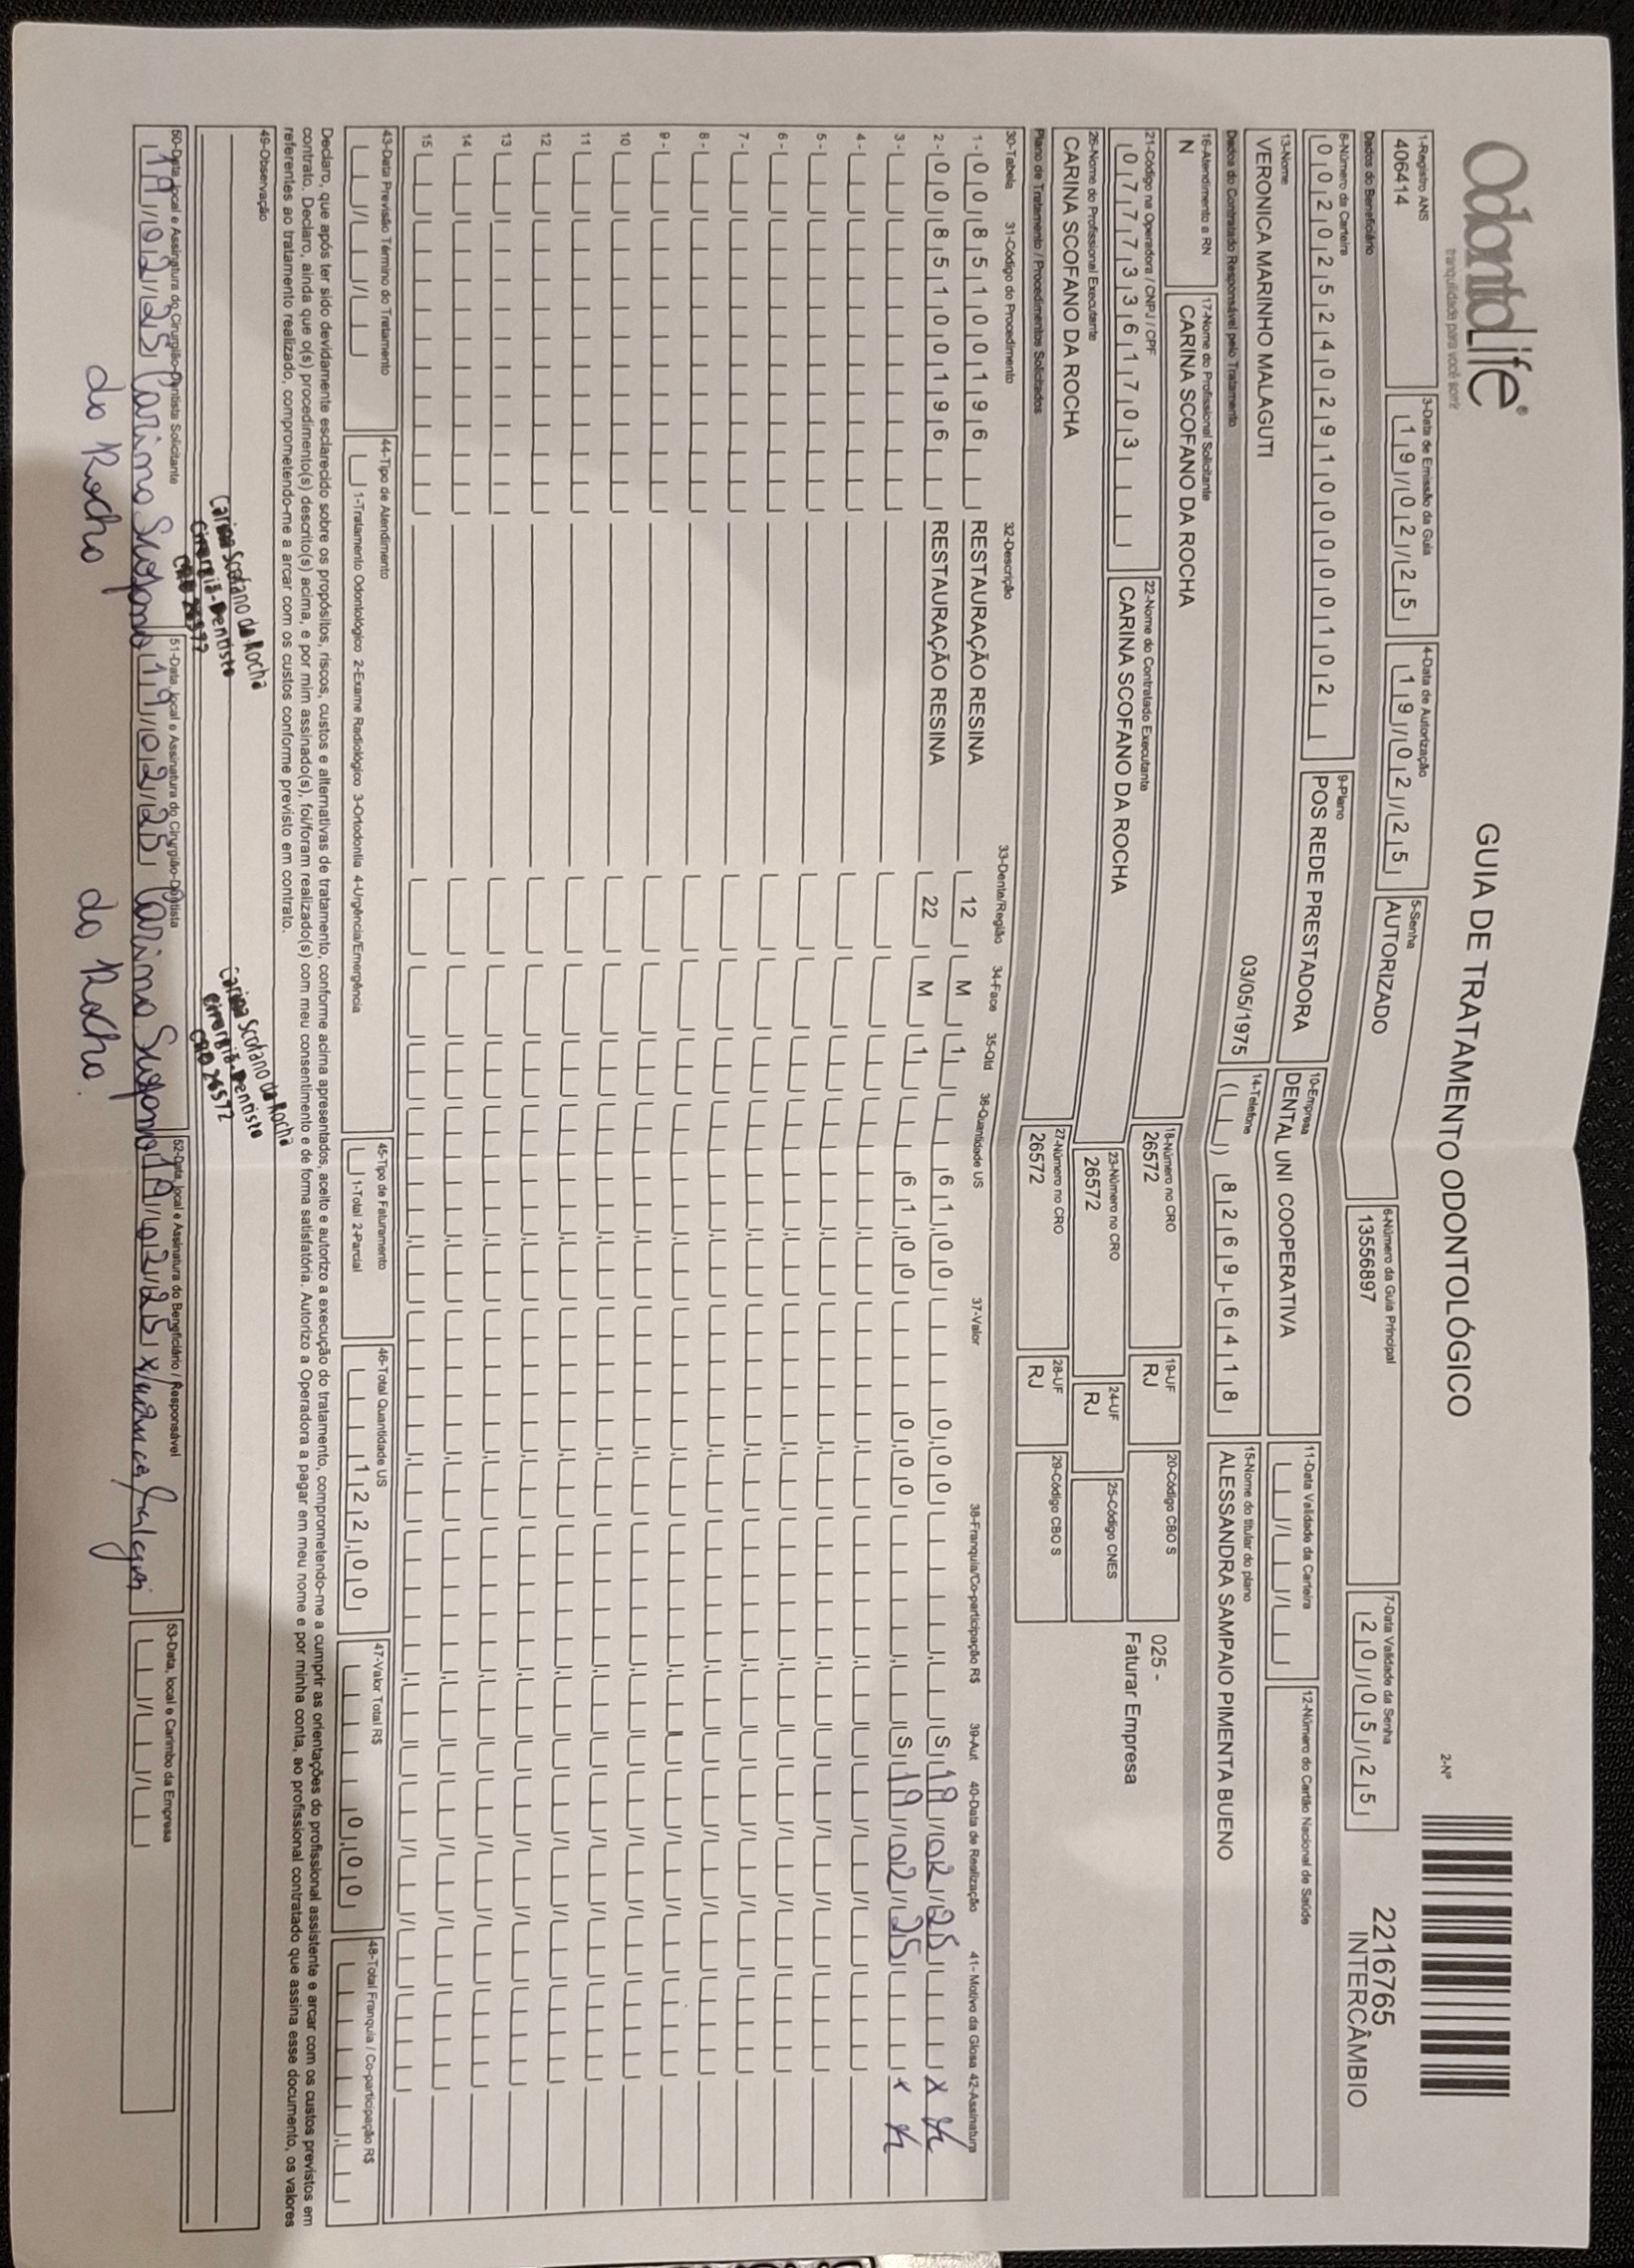 OdontoLife®
tranquilidade para você sorrir
GUIA DE TRATAMENTO ODONTOLÓGICO
2-Nº
2216765
INTERCÂMBIO
1-Registro ANS
406414
3-Data de Emissão da Guia
19/02/25
4-Data de Autorização
19/02/25
5-Senha
AUTORIZADO
6-Número da Guia Principal
13556897
7-Data Validade da Senha
20/05/25
Dados do Beneficiário
8-Número da Carteira
00202524029100000102
9-Plano
POS REDE PRESTADORA
10-Empresa
DENTAL UNI COOPERATIVA
11-Data Validade da Carteira
12-Número do Cartão Nacional de Saúde
13-Nome
VERONICA MARINHO MALAGUTI
03/05/1975
14-Telefone
( ) 8269-6418
15-Nome do titular do plano
ALESSANDRA SAMPAIO PIMENTA BUENO
Dados do Contratado Responsável pelo Tratamento
16-Atendimento a RN
N
17-Nome do Profissional Solicitante
CARINA SCOFANO DA ROCHA
18-Número no CRO
26572
19-UF
RJ
20-Código CBO S
025 -
Faturar Empresa
21-Código na Operadora / CNPJ / CPF
07773361703
22-Nome do Contratado Executante
CARINA SCOFANO DA ROCHA
23-Número no CRO
26572
24-UF
RJ
25-Código CNES
26-Nome do Profissional Executante
CARINA SCOFANO DA ROCHA
27-Número no CRO
26572
28-UF
RJ
29-Código CBO S
Plano de Tratamento / Procedimentos Solicitados
30-Tabela 31-Código do Procedimento 32-Descrição 33-Dente/Região 34-Face 35-Qtd 36-Quantidade US 37-Valor 38-Franquia/Co-participação R$ 39-Aut 40-Data de Realização 41- Motivo da Glosa 42-Assinatura
1 - 00 85100196 RESTAURAÇÃO RESINA 12 M 1 61,00 0,00 S 19/02/25 x
2 - 00 85100196 RESTAURAÇÃO RESINA 22 M 1 61,00 0,00 S 19/02/25 x
3 -
4 -
5 -
6 -
7 -
8 -
9 -
10
11
12
13
14
15
43-Data Previsão Término do Tratamento
44-Tipo de Atendimento
1-Tratamento Odontológico 2-Exame Radiológico 3-Ortodontia 4-Urgência/Emergência
45-Tipo de Faturamento
1-Total 2-Parcial
46-Total Quantidade US
122,00
47-Valor Total R$
0,00
48-Total Franquia / Co-participação R$
Declaro, que após ter sido devidamente esclarecido sobre os propósitos, riscos, custos e alternativas de tratamento, conforme acima apresentados, aceito e autorizo a execução do tratamento, comprometendo-me a cumprir as orientações do profissional assistente e arcar com os custos previstos em
contrato. Declaro, ainda que o(s) procedimento(s) descrito(s) acima, e por mim assinado(s), foi/foram realizado(s) com meu consentimento e de forma satisfatória. Autorizo a Operadora a pagar em meu nome e por minha conta, ao profissional contratado que assina esse documento, os valores
referentes ao tratamento realizado, comprometendo-me a arcar com os custos conforme previsto em contrato.
49-Observação
Carina Scofano da Rocha
Cirurgiã-Dentista
CRO 26572
Carina Scofano da Rocha
Cirurgiã-Dentista
CRO 26572
50-Data, local e Assinatura do Cirurgião-Dentista Solicitante
19/02/25 Carina Scofano
da Rocha
51-Data, local e Assinatura do Cirurgião-Dentista
19/02/25 Carina Scofano
da Rocha.
52-Data, local e Assinatura do Beneficiário / Responsável
19/02/25 x
53-Data, local e Carimbo da Empresa